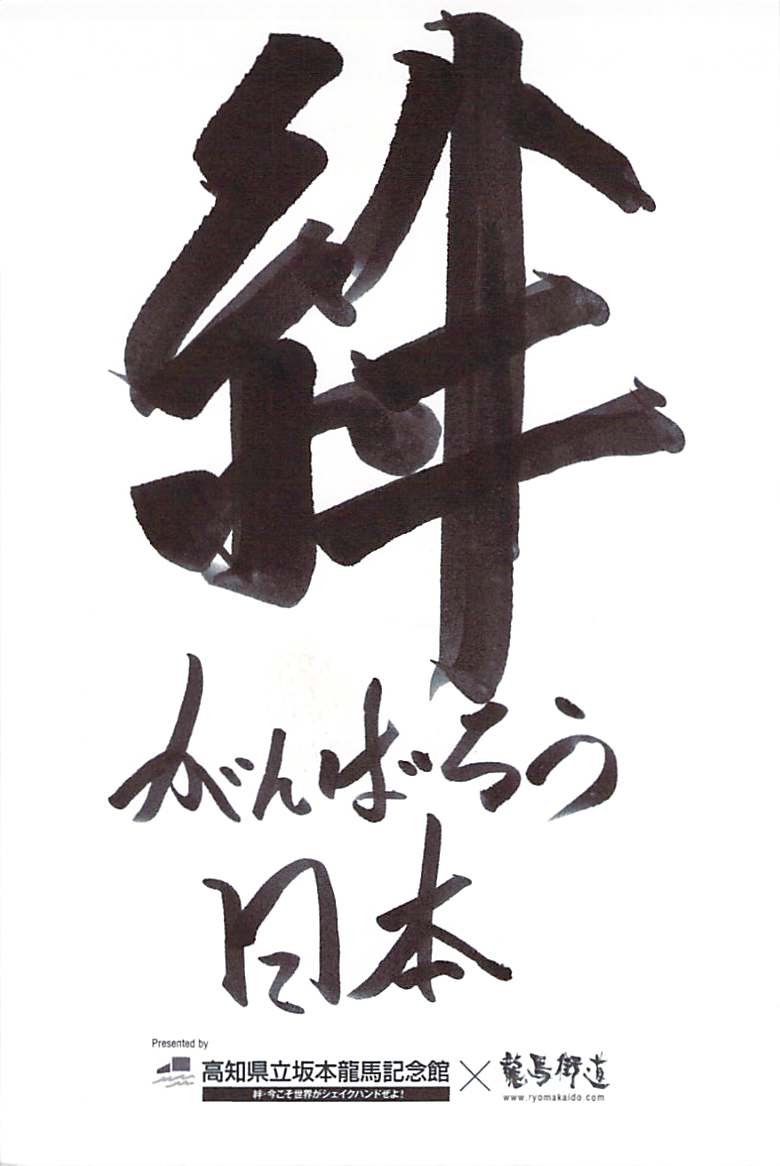 絆
がんばろう
日本
Presented by
高知県立坂本龍馬記念館 × 龍馬街道
絆・今こそ世界がシェイクハンドぜよ!
www.ryomakaido.com